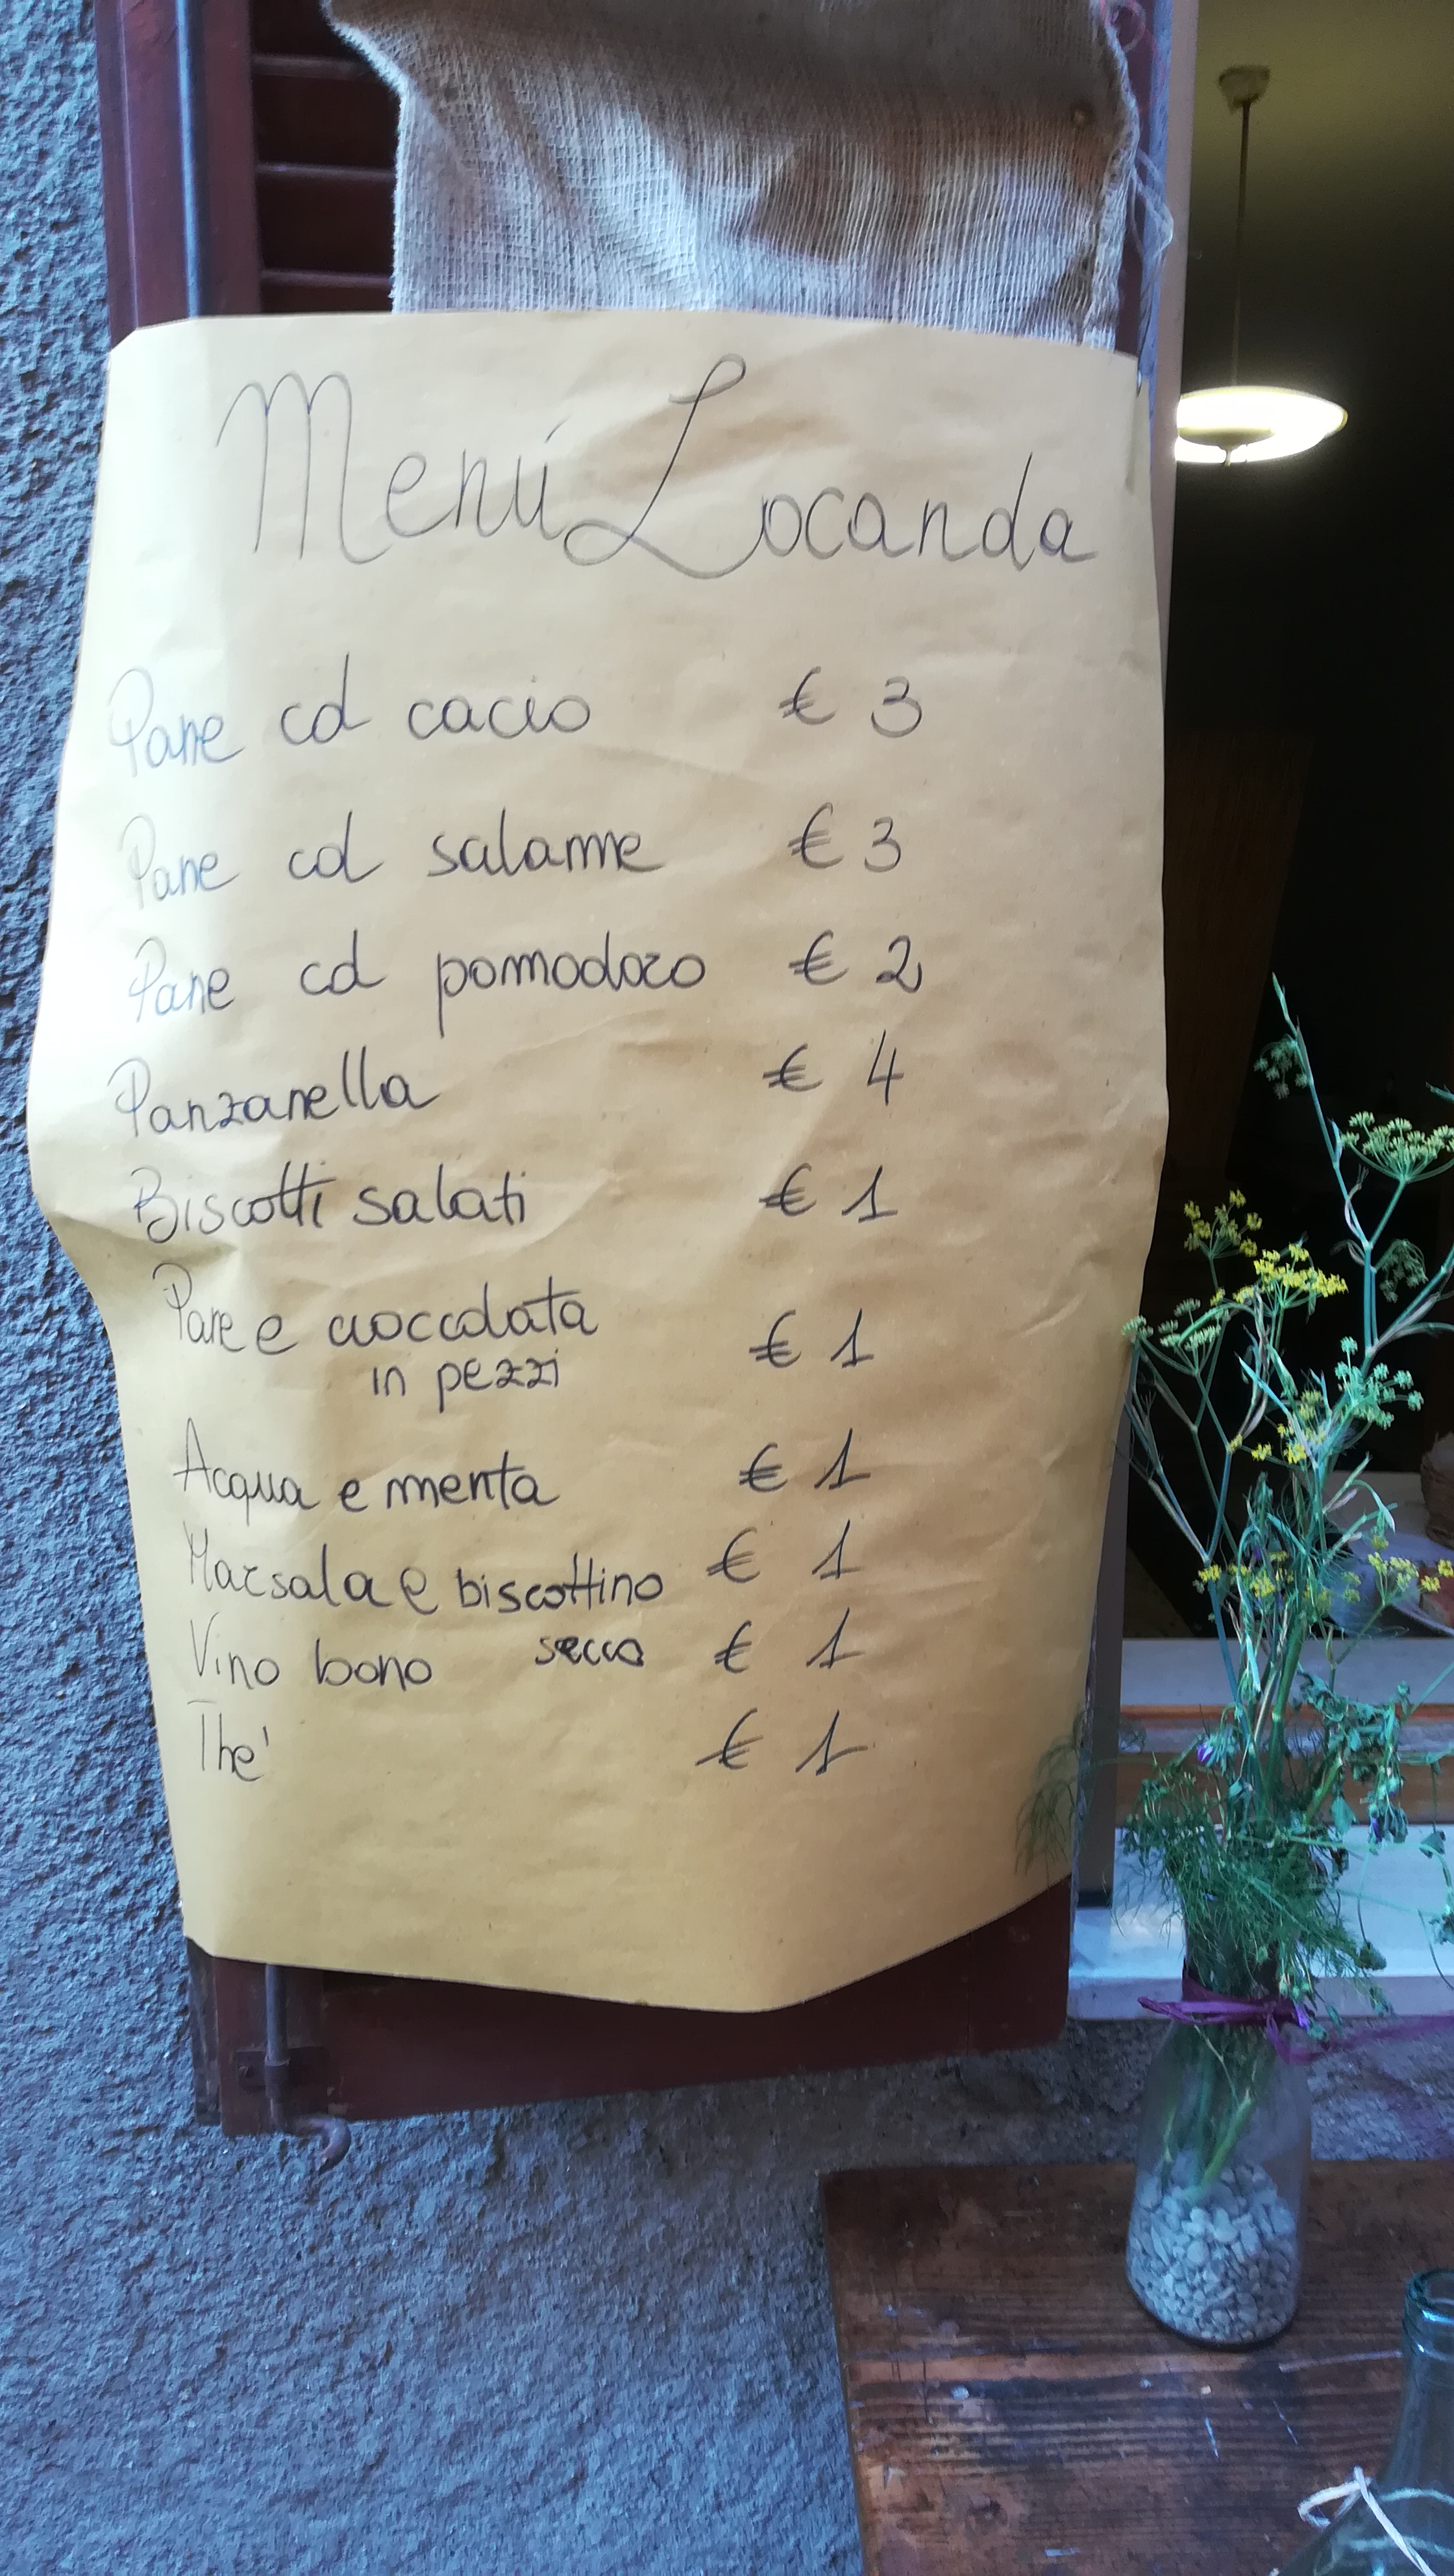 Menú Locanda
Pane col cacio € 3
Pane col salame € 3
Pane col pomodoro € 2
Panzanella € 4
Biscotti salati € 1
Pane e cioccolata € 1
in pezzi
Acqua e menta € 1
Marsala e biscottino € 1
secco
Vino bono € 1
The' € 1